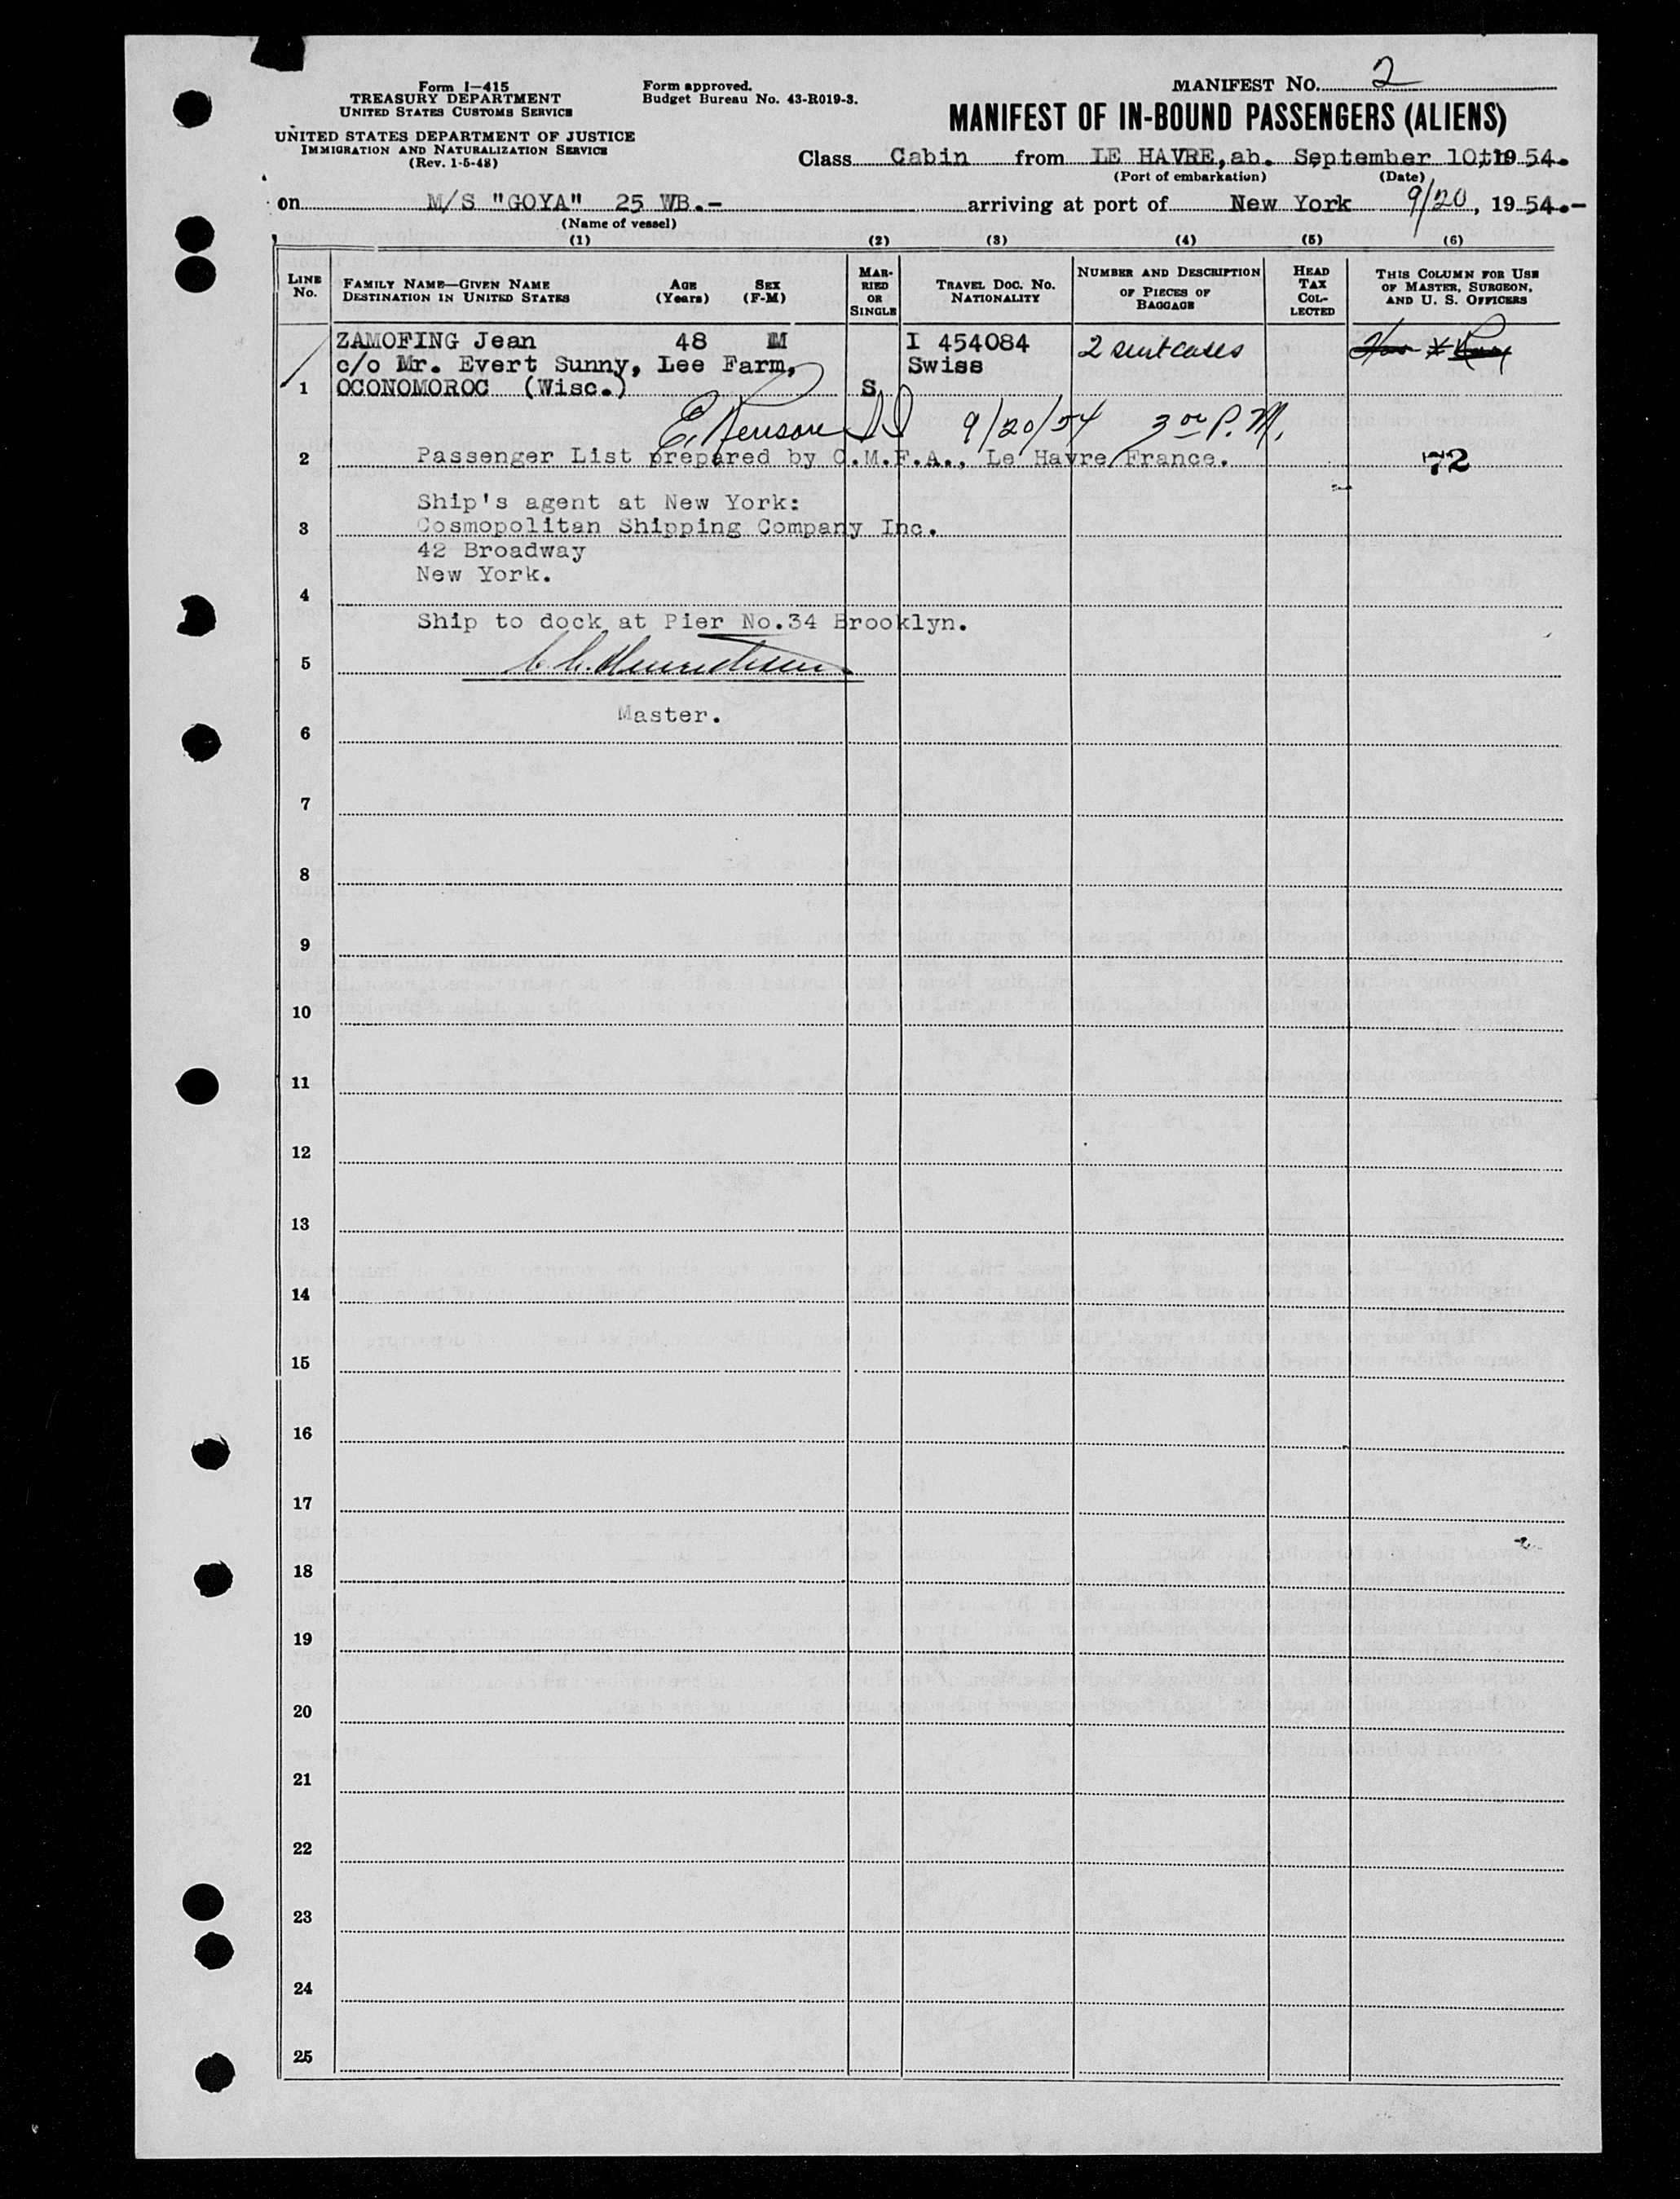 Form I-415
TREASURY DEPARTMENT
UNITED STATES CUSTOMS SERVICE
UNITED STATES DEPARTMENT OF JUSTICE
IMMIGRATION AND NATURALIZATION SERVICE
(Rev. 1-5-48)
Form approved.
Budget Bureau No. 43-R019-3.
MANIFEST NO. 2
MANIFEST OF IN-BOUND PASSENGERS (ALIENS)
Class Cabin from LE HAVRE, ab. September 10th 1954.
(Port of embarkation) (Date)
on M/S "GOYA" 25 WB.- arriving at port of New York 9/20, 1954.-
(Name of vessel)
(1) (2) (3) (4) (5) (6)
LINE No.
FAMILY NAME—GIVEN NAME AGE SEX
DESTINATION IN UNITED STATES (Years) (F-M)
MARRIED OR SINGLE
TRAVEL DOC. No. NATIONALITY
NUMBER AND DESCRIPTION OF PIECES OF BAGGAGE
HEAD TAX COLLECTED
THIS COLUMN FOR USE OF MASTER, SURGEON, AND U. S. OFFICERS
ZAMOFING Jean 48 M I 454084 2 suitcases
c/o Mr. Evert Sunny, Lee Farm, Swiss
1 OCONOMOROC (Wisc.) S
9/20/54 3 00 P.M.
2 Passenger List prepared by C.M.F.A., Le Havre France. 72
Ship's agent at New York:
3 Cosmopolitan Shipping Company Inc.
42 Broadway
New York.
4
Ship to dock at Pier No.34 Brooklyn.
5
Master.
6
7
8
9
10
11
12
13
14
15
16
17
18
19
20
21
22
23
24
25